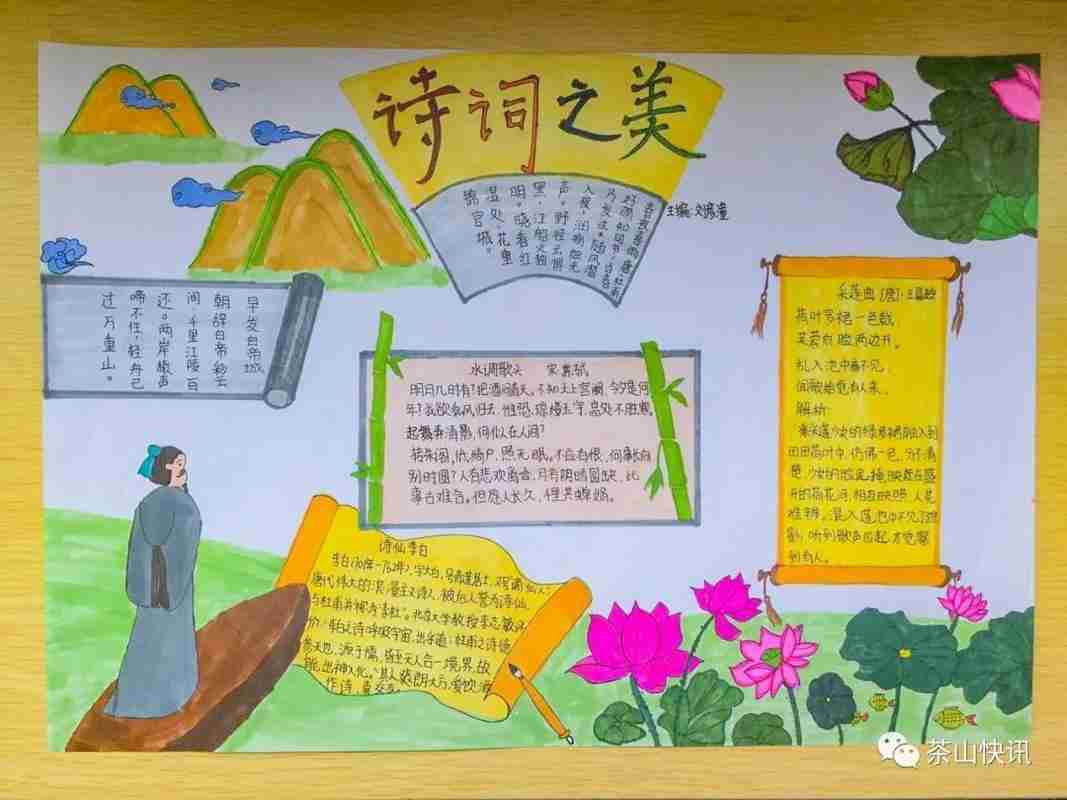 诗词之美
春夜喜雨 唐杜甫
好雨知时节，当春
乃发生。随风潜
入夜，润物细无
声。野径云俱
黑，江船火独
明。晓看红
湿处，花重
锦官城。
主编：刘
早发白帝城
朝辞白帝彩云
间，千里江陵一日
还。两岸猿声
啼不住，轻舟已
过万重山。
水调歌头 宋
明月几时有？把酒问青天。不知天上宫阙，今夕是何
年？我欲乘风归去，惟恐，琼楼玉宇，高处不胜寒。
起舞弄清影，何似在人间？
转朱阁，低绮户，照无眠。不应有恨，何事长向
别时圆？人有悲欢离合，月有阴晴圆缺，此
事古难全。但愿人长久，千里共婵娟。
采莲曲 [唐]·王昌龄
荷叶罗裙一色裁，
芙蓉向脸两边开。
乱入池中看不见，
闻歌始觉有人来。
解析：
采莲少女的绿罗裙融入到
田田荷叶中，仿佛一色，分不清
楚，少女的脸庞掩映在盛
开的荷花间，相互映照，人花
难辨。混入莲池中不见了踪
影，听到歌声四起，才觉察
到有人。
诗仙李白
李白（701年—762年），字太白，号青莲居士，又号“谪仙人”，
唐代伟大的浪漫主义诗人，被后人誉为“诗仙”，
与杜甫并称为“李杜”。北京大学教授李志敏评
价：“李白之诗呼吸宇宙，出乎道；杜甫之诗德
参天地，源于儒，皆至天人合一境界，故
能出神入化。”其人爽朗大方，爱饮酒
作诗，喜交友
茶山快讯